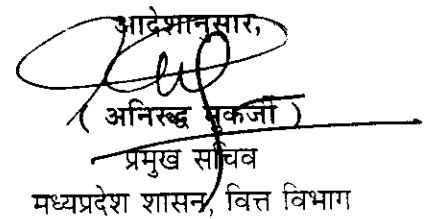 आदेशानुसार,
( अनिरूद्ध मुकर्जी )
प्रमुख सचिव
मध्यप्रदेश शासन, वित्त विभाग